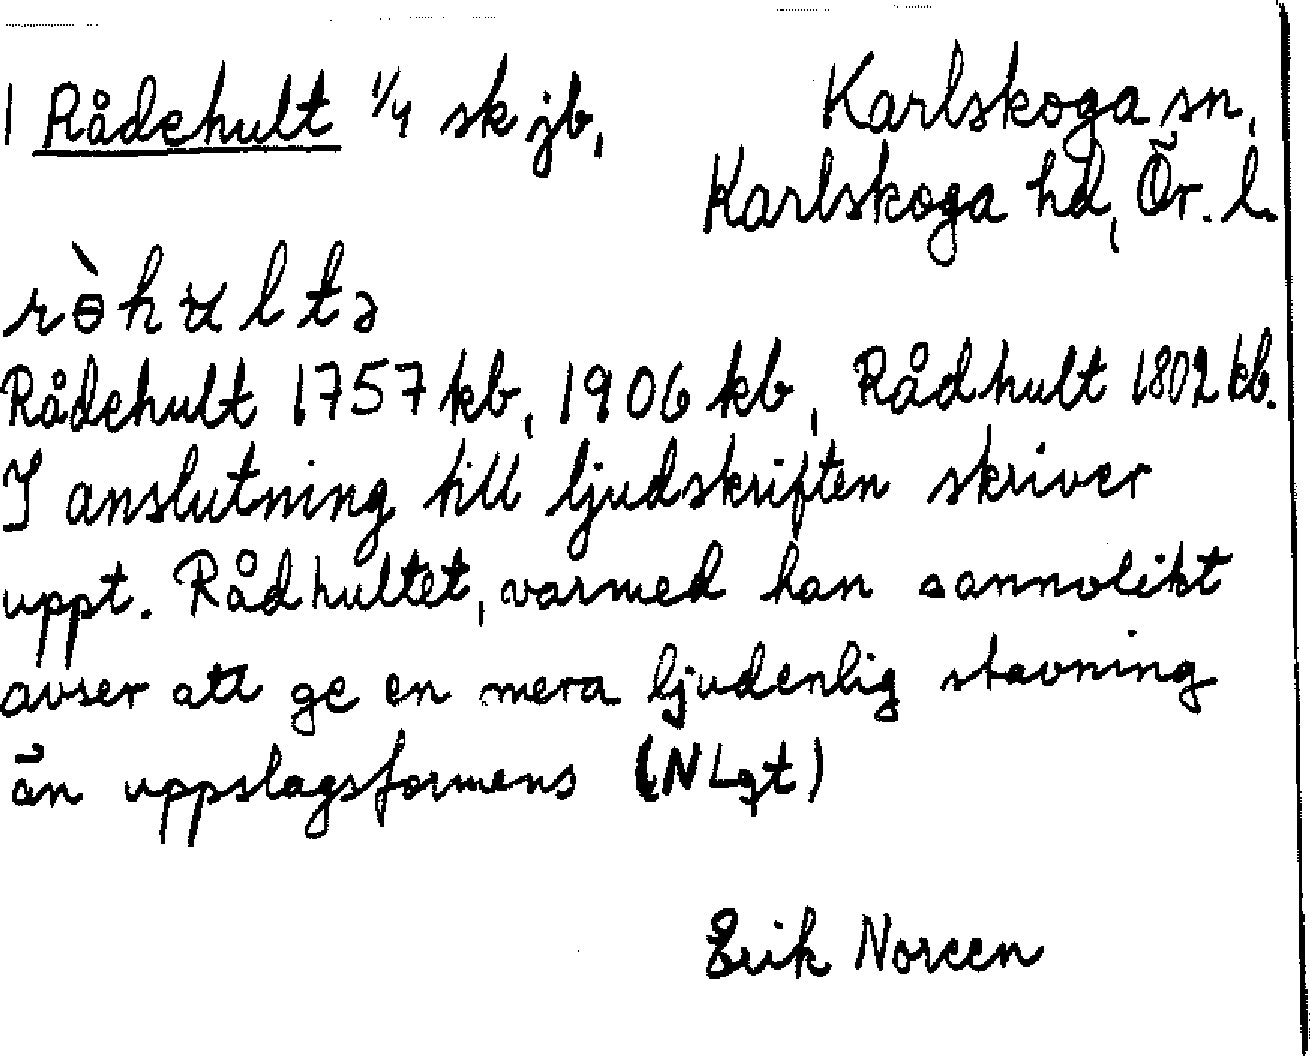 1 Rådehult 1/4 sk jb,
Karlskoga sn,
Karlskoga hd, Ör. l.
rɵ̀hʉltə
Rådehult 1757 kb, 1906 kb, Rådhult 1802 kb.
I anslutning till ljudskriften skriver
uppt. Rådhultet, varmed han sannolikt
avser att ge en mera ljudenlig stavning
än uppslagsformens (NLgt)
Erik Noreen